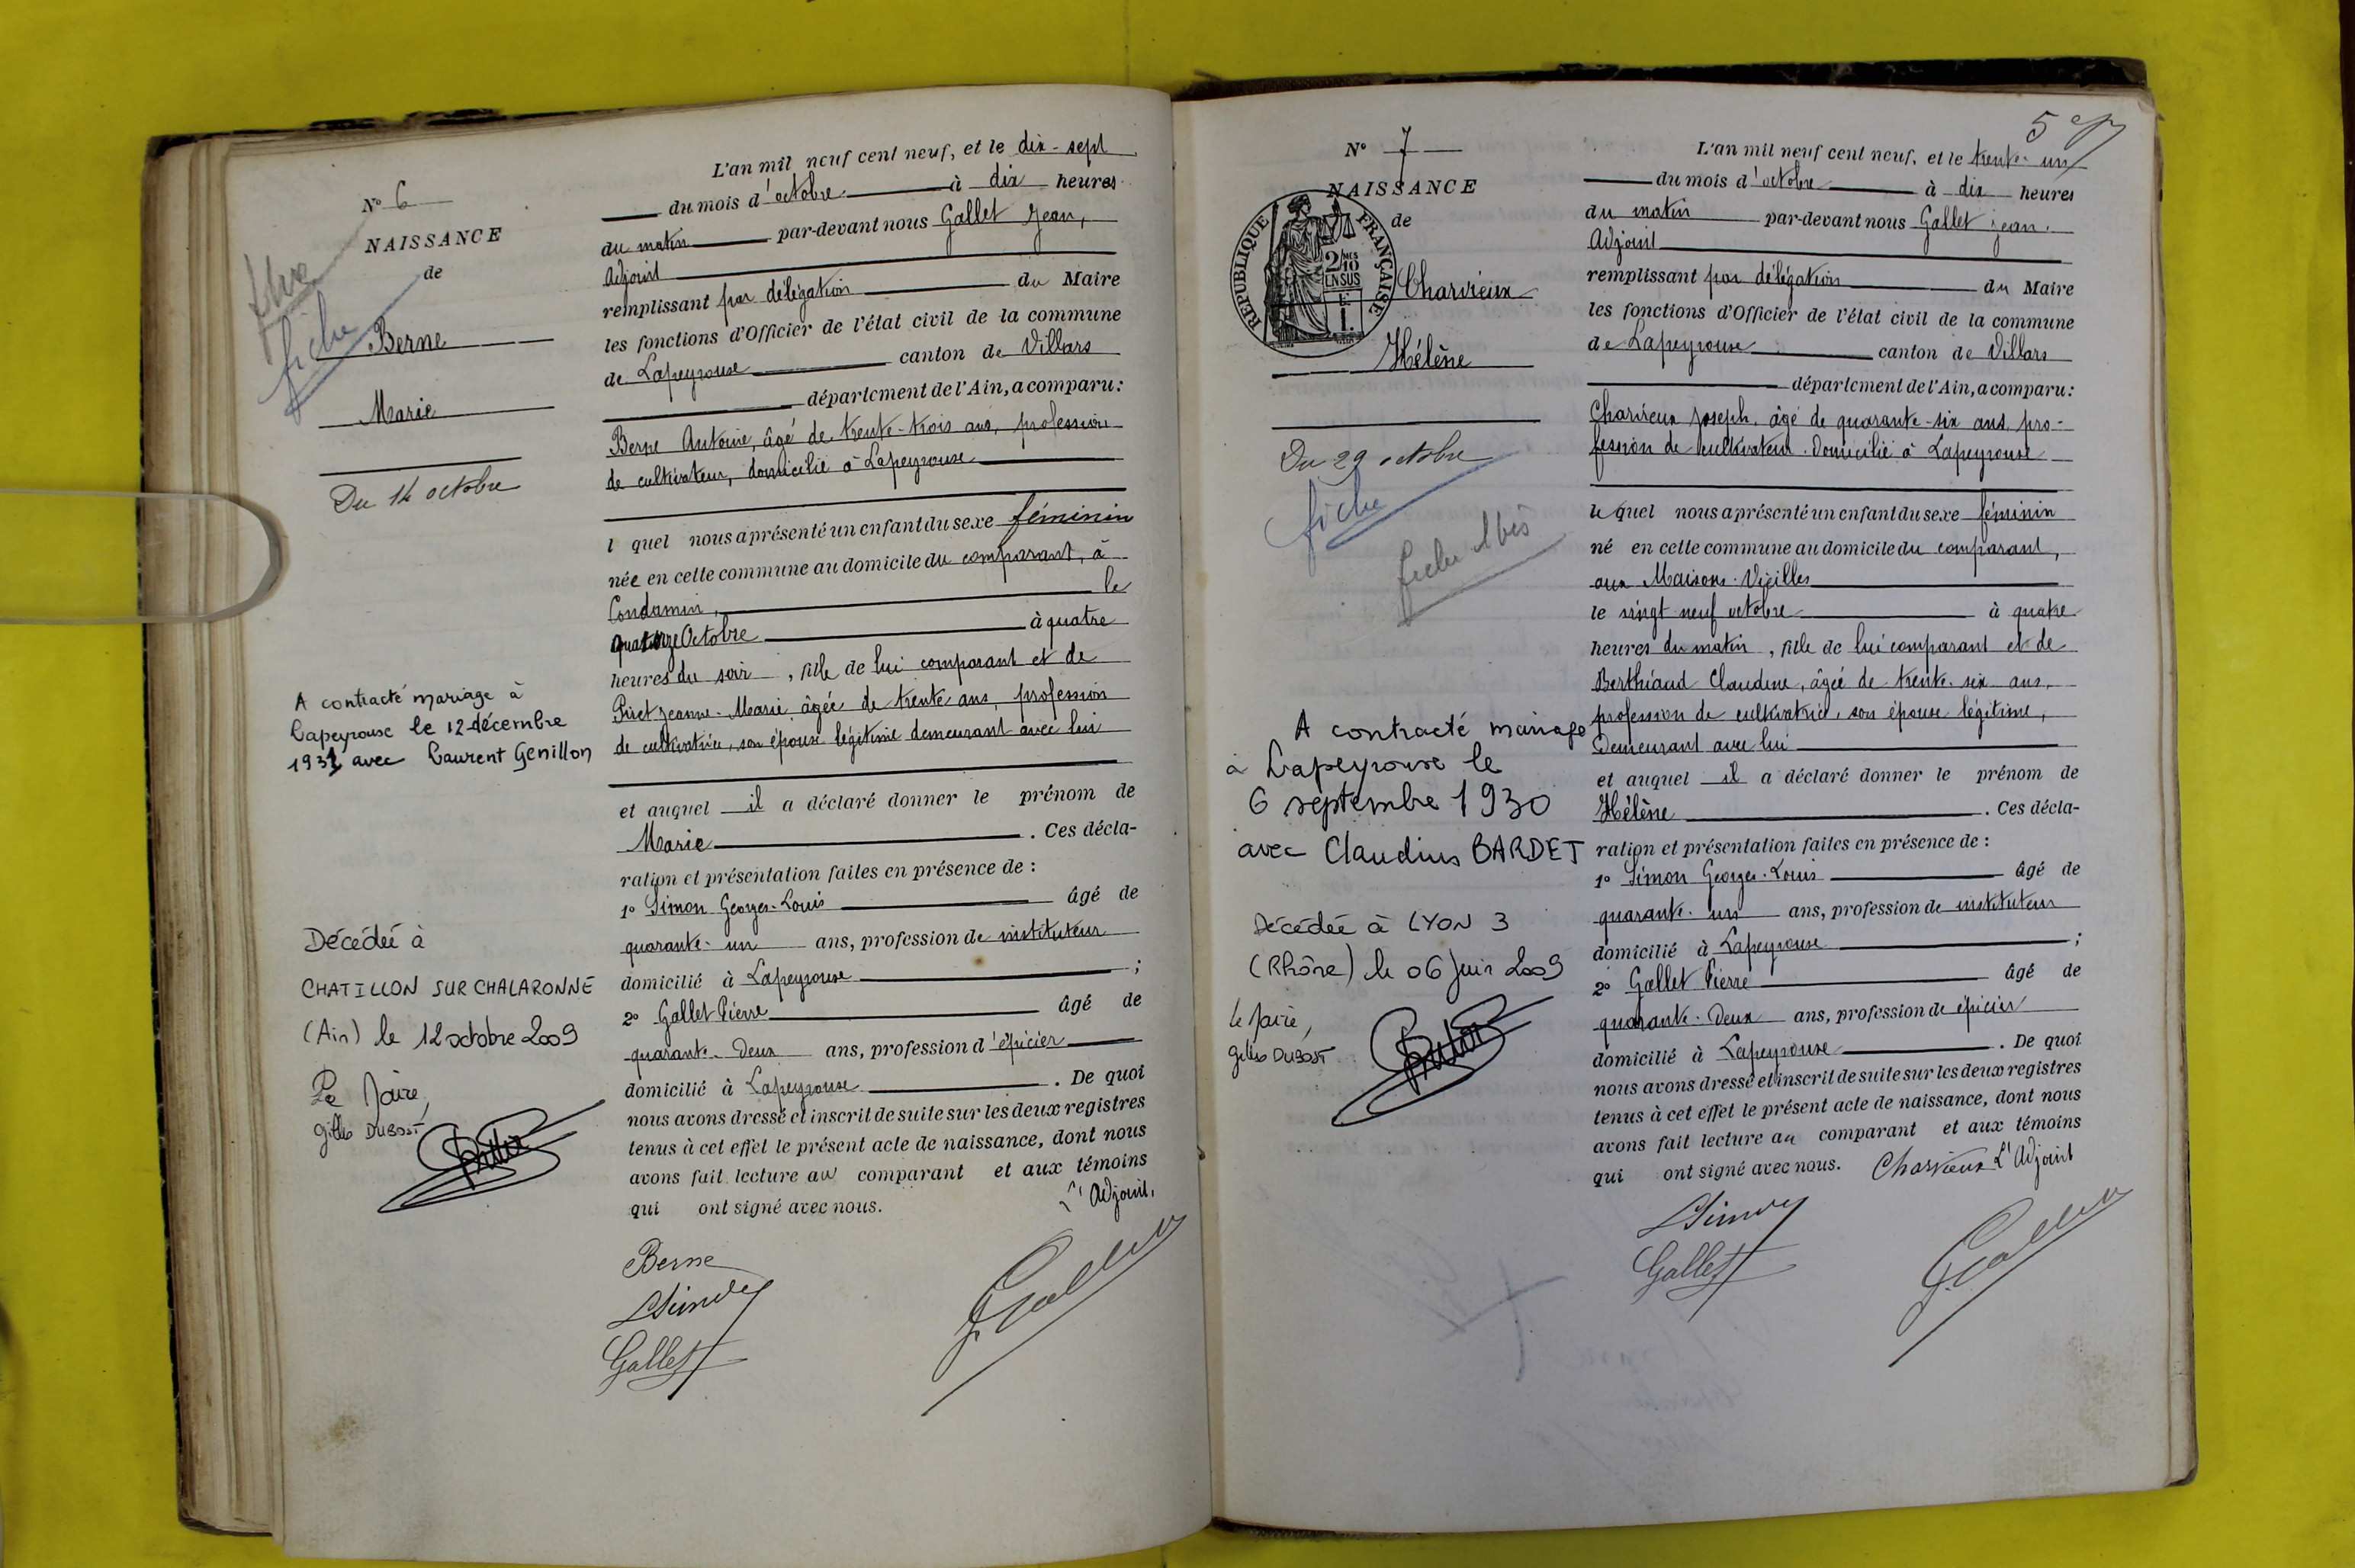 N° 6
NAISSANCE
de
Berne
Marie
Du 14 octobre
fiche
A contracté mariage à
Lapeyrouse le 12 décembre
1931 avec Laurent Genillon
Décédée à
CHATILLON SUR CHALARONNE
(Ain) le 12 octobre 2009
Le Maire,
Gilles DUBOST
L'an mil neuf cent neuf, et le dix-sept
du mois d'octobre à dix heures
du matin par-devant nous Gallet Jean,
Adjoint
remplissant par délégation du Maire
les fonctions d'Officier de l'état civil de la commune
de Lapeyrouse canton de Villars
département de l'Ain, a comparu:
Berne Antoine, âgé de trente-trois ans, profession
de cultivateur, domicilié à Lapeyrouse
l quel nous a présenté un enfant du sexe féminin
née en cette commune au domicile du comparant, à
Condamin, le
quatorze Octobre à quatre
heures du soir, fille de lui comparant et de
Piret Jeanne-Marie, âgée de trente ans, profession
de cultivatrice, son épouse légitime demeurant avec lui
et auquel il a déclaré donner le prénom de
Marie. Ces décla-
ration et présentation faites en présence de :
1° Simon Georges-Louis âgé de
quarante-un ans, profession de instituteur
domicilié à Lapeyrouse ;
2° Gallet Pierre âgé de
quarante-deux ans, profession d'épicier
domicilié à Lapeyrouse. De quoi
nous avons dressé et inscrit de suite sur les deux registres
tenus à cet effet le présent acte de naissance, dont nous
avons fait lecture au comparant et aux témoins
qui ont signé avec nous.
L'Adjoint,
Berne
LSimon
Gallet
J. Gallet
5e
N° 7
NAISSANCE
de
RÉPUBLIQUE FRANÇAISE
2/10 EN SUS
Charvieux
Hélène
Du 29 octobre
fiche
fiche 1 bis
A contracté mariage
à Lapeyrouse le
6 septembre 1930
avec Claudius BARDET
Décédée à LYON 3
(Rhône) le 06 Juin 2009
Le Maire,
Gilles DUBOST
L'an mil neuf cent neuf, et le trente-un
du mois d'octobre à dix heures
du matin par-devant nous Gallet Jean.
Adjoint
remplissant par délégation du Maire
les fonctions d'Officier de l'état civil de la commune
de Lapeyrouse canton de Villars
département de l'Ain, a comparu:
Charvieux Joseph, âgé de quarante-six ans, pro-
fession de cultivateur. Domicilié à Lapeyrouse
lequel nous a présenté un enfant du sexe féminin
né en cette commune au domicile du comparant,
aux Maisons-Vieilles
le vingt neuf octobre à quatre
heures du matin, fille de lui comparant et de
Berthiaud Claudine, âgée de trente-six ans,
profession de cultivatrice, son épouse légitime,
Demeurant avec lui
et auquel il a déclaré donner le prénom de
Hélène. Ces décla-
ration et présentation faites en présence de :
1° Simon Georges-Louis âgé de
quarante-un ans, profession de instituteur
domicilié à Lapeyrouse ;
2° Gallet Pierre âgé de
quarante-Deux ans, profession de épicier
domicilié à Lapeyrouse. De quoi
nous avons dressé et inscrit de suite sur les deux registres
tenus à cet effet le présent acte de naissance, dont nous
avons fait lecture au comparant et aux témoins
qui ont signé avec nous. Charvieux L'Adjoint
LSimon
Gallet
J. Gallet